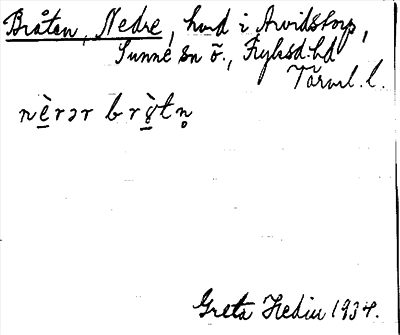 Bråten, Nedre, hmd i Arvidstorp,
Sunne sn ö., Fryksd. hd
Värml. l.
nè̱rər brò̱tn̥
Greta Hedin 1934.